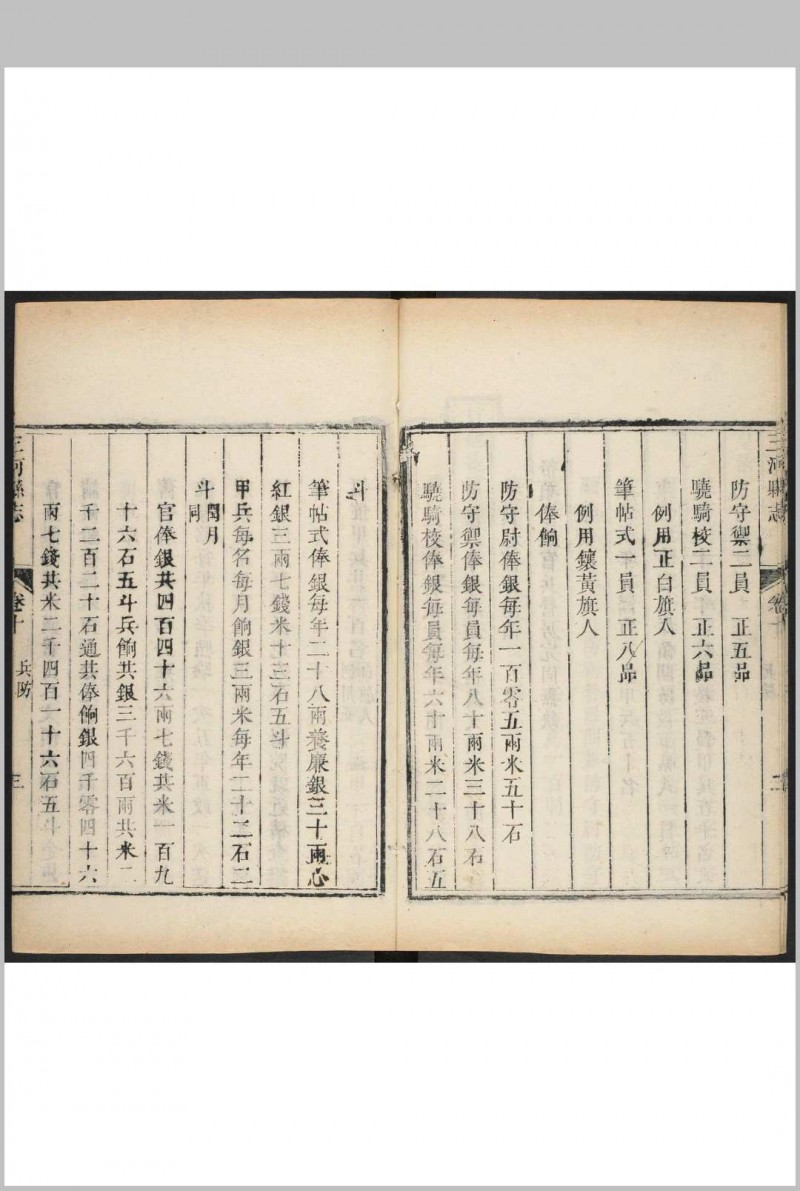 三河縣志
卷十
二
防守禦二員　正五品
驍騎校二員　正六品
例用正白旗人
筆帖式一員　正八品
例用鑲黃旗人
俸餉
防守尉俸銀每年一百零五兩米五十石
防守禦俸銀每員每年八十兩米三十八石
驍騎校俸銀每員每年六十兩米二十八石五
斗
筆帖式俸銀每年二十八兩養廉銀三十兩心
紅銀三兩七錢米十三石五斗
甲兵每名每月餉銀三兩米每年二十二石二
斗閏月同
官俸銀共四百四十六兩七錢共米一百九
十六石五斗兵餉共銀三千六百兩共米二
千二百二十石通共俸餉銀四千零四十六
兩七錢共米二千四百一十六石五斗
三河縣志
卷十
兵防
三